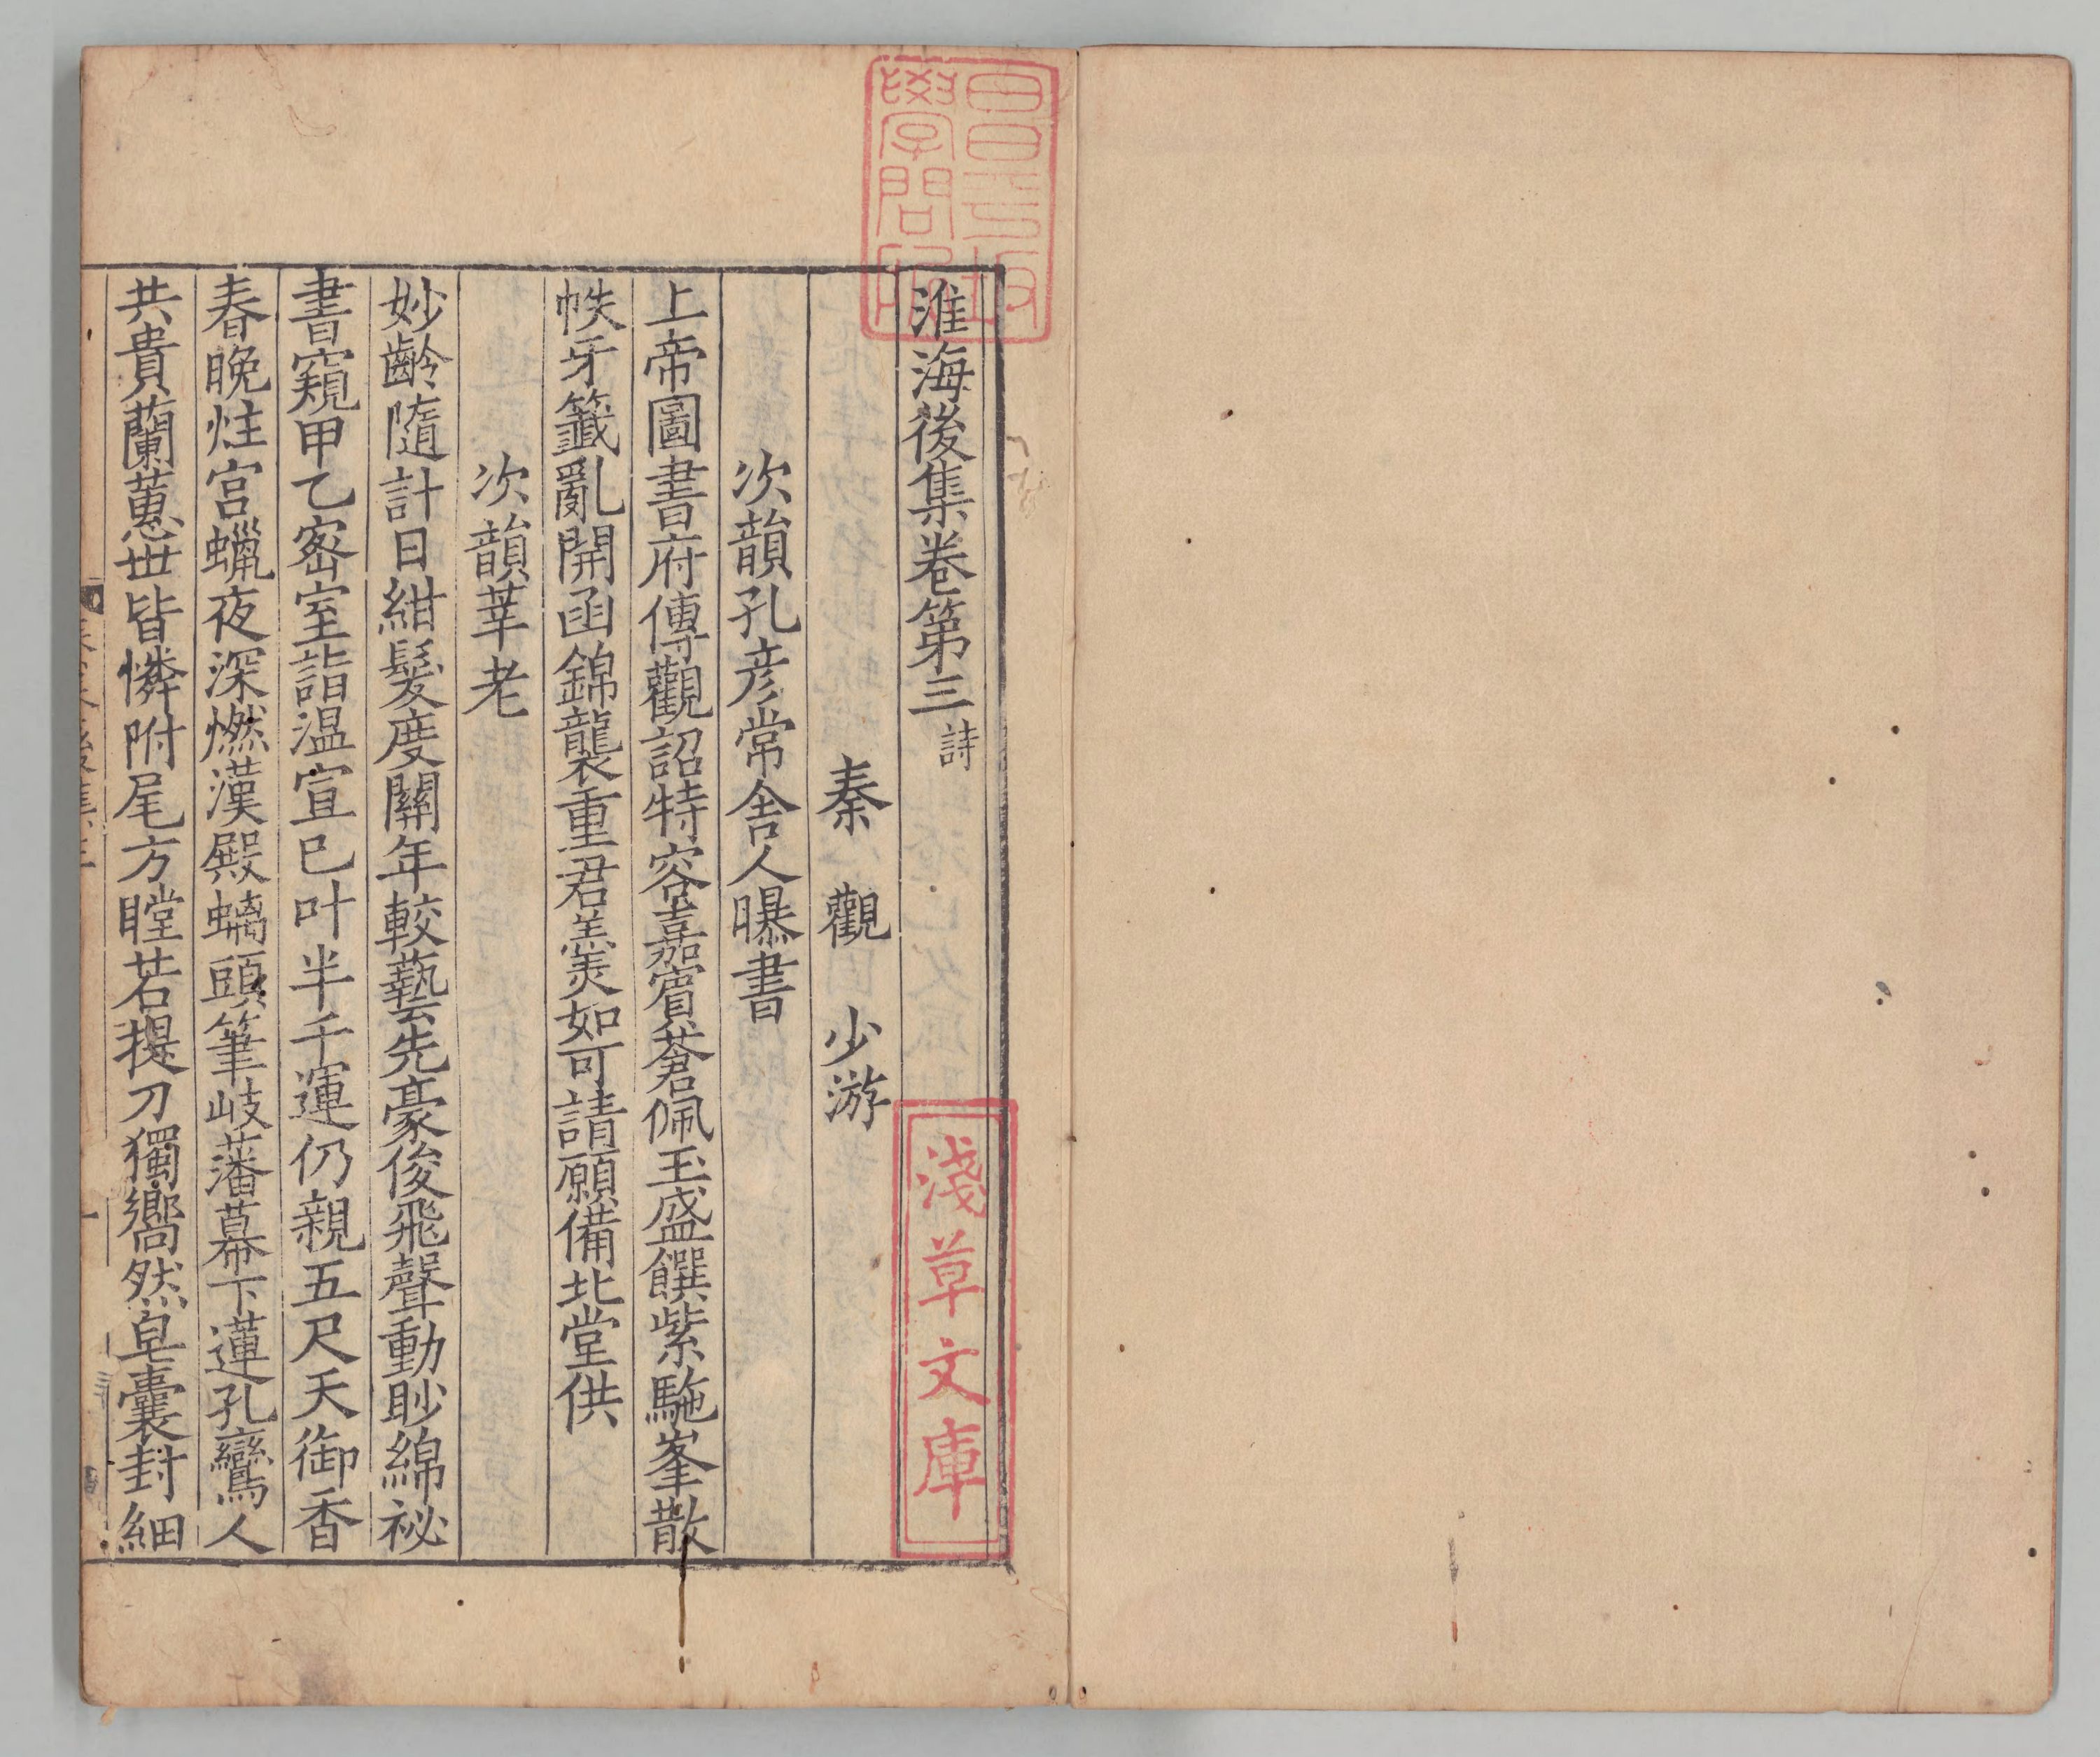 淮海後集卷第三 詩
秦觀 少游
次韻孔彦常舎人曝書
上帝圖書府傳觀詔特容嘉賓蒼佩玉盛饌紫駞峯散
帙牙籤亂開函錦襲重君羮如可請願備北堂供
次韻莘老
妙齡隨計日紺髮度關年較藝先豪俊飛聲動眇綿祕
書窺甲乙宻室詣温宣已叶半千運仍親五尺天御香
春晚炷宫蠟夜深燃漢殿螭頭筆岐藩幕下蓮孔鸞人
共貴蘭蕙世皆憐附尾方瞠若提刀獨嚮然皂囊封細
昌平坂
學問所
淺草文庫